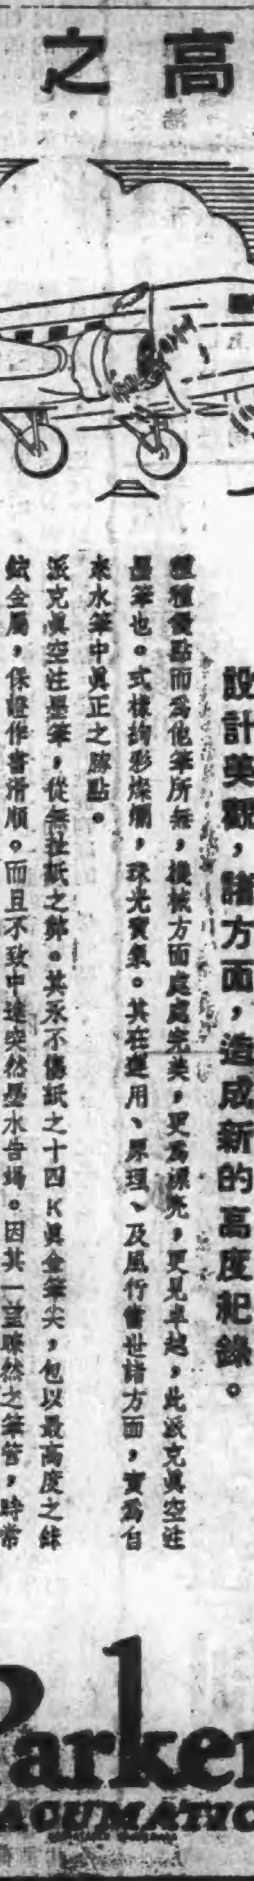 高之
設計美觀，諸方面，造成新的高度紀錄。
種種優點而爲他筆所無，機械方面處處完美，更爲漂亮，更見卓越，此派克眞空注
墨筆也。式樣絢彩燦爛，珠光寶氣。其在運用、原理、及風行當世諸方面，實爲自
來水筆中眞正之勝點。
派克眞空注墨筆，從無扯紙之弊。其永不傷紙之十四K眞金筆尖，包以最高度之銥
銥金屬，保證作書滑順。而且不致中途突然墨水告竭。因其一望瞭然之筆管，時常
Parker
VACUMATIC